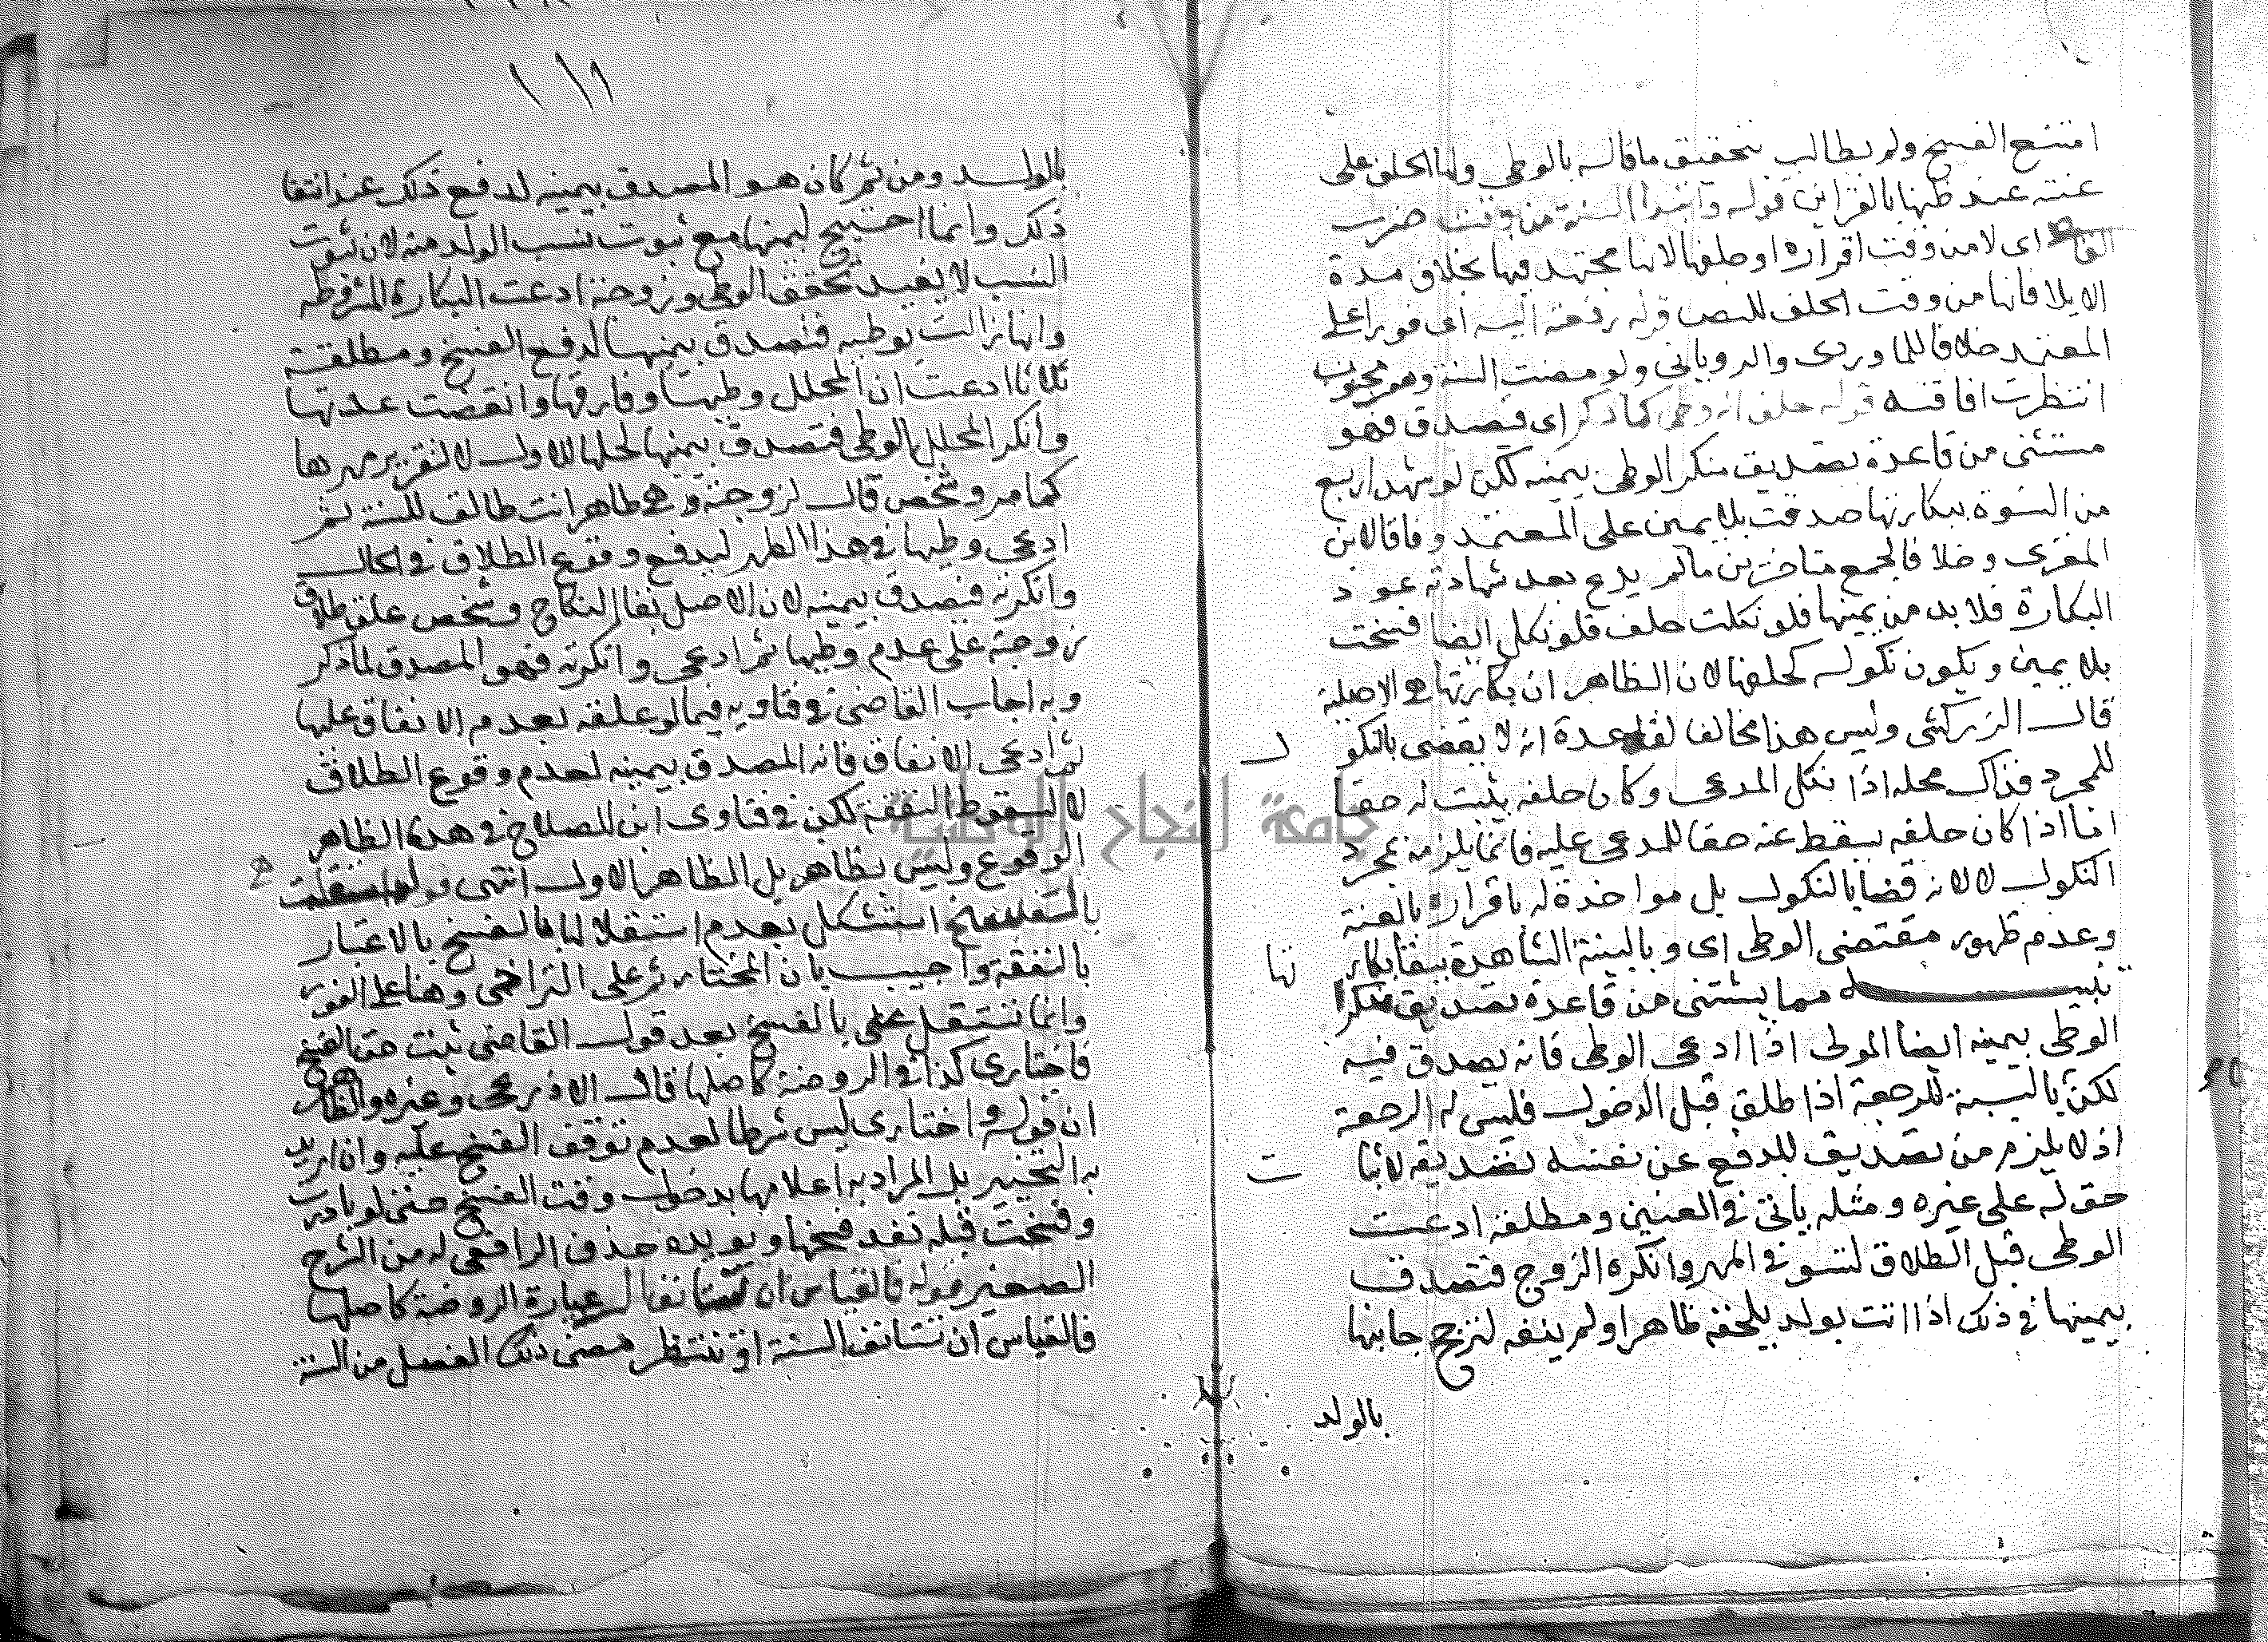 امتنع الفسخ ولم يطالب بتحقيق ما قاله بالوطى ولها الحلف على
عنته عند ظنها بالقراين قوله وابتدا السنة من وقت ضرب
القاضي اى لا من وقت اقراره او حلفها لانها مجتهد فيها بخلاف مدة
الايلا فانها من وقت الحلف للنص قوله رفعته اليه اى فورا على
المعتمد خلافا للماوردى والرويانى ولو مضت السنة وهو مجنون
انتظرت افاقته قوله حلف انه وطى كما ذكر اى فيصدق فهو
مستثنى من قاعدة تصديق منكر الوطى بيمينه لكن لو شهد اربع
من النسوة ببكارتها صدقت بلا يمين على المعتمد وفاقا لابن
المقرى وخلافا لجمع متاخرين ما لم يدع بعد شهادته عود
البكارة فلا بد من يمينها فلو نكلت حلف فلو نكل ايضا فسخت
بلا يمين ويكون نكوله كحلفها لان الظاهر ان بكارتها هى الاصلية
قال الزركشى وليس هذا مخالفا لقاعدة انه لا يقضى بالنكو
ل
للمجرد فذاك محله اذا نكل المدعى وكان حلفه يثبت له حقا
اما اذا كان حلفه يسقط عنه حقا للمدعى عليه فانما يلزمه بمجرد
النكول لا لانه قضا بالنكول بل مواخذة له باقراره بالعنة
وعدم ظهور مقتضى الوطى اى وبالبينة الشاهدة ببقا بكار
تها
تنبيه مما يستثنى من قاعدة تصديق منكر
الوطى بيمينه ايضا المولى اذا ادعى الوطى فانه يصدق فيه
لكن بالنسبة للرجعة اذا طلق قبل الدخول فليس له الرجعة
اذ لا يلزم من تصديق للدفع عن نفسه تصديقه لاثبا
ت
حق له على غيره ومثله ياتى فى العنين ومطلقة ادعت
الوطى قبل الطلاق لتستوفى المهر وانكره الزوج فتصدق
بيمينها فى ذلك اذا اتت بولد يلحقه ظاهرا ولم ينفه لترجح جانبها
بالولد
١١١
بالولد ومن ثم كان هو المصدق بيمينه لدفع ذلك عند انتفا
ذلك وانما احتيج ليمينها مع ثبوت نسب الولد منه لان ثبوت
النسب لا يفيد تحقق الوطى وزوجة ادعت البكارة المشروطة
وانها زالت بوطيه فتصدق بيمينها لدفع الفسخ ومطلقته
ثلاثا ادعت ان المحلل وطيها وفارقها وانقضت عدتها
وانكر المحلل الوطى فتصدق بيمينها لحلها للاول لا لتقرير مهرها
كما مر وشخص قال لزوجته وهى طاهر انت طالق للسنة ثم
ادعى وطيها فى هذا الطهر ليدفع وقوع الطلاق فى الحال
وانكرته فيصدق بيمينه لان الاصل بقا النكاح وشخص علق طلاق
زوجته على عدم وطيها ثم ادعى وانكرته فهو المصدق لما ذكر
وبه اجاب القاضى فى فتاويه فيما لو علقه بعدم الانفاق عليها
ثم ادعى الانفاق فانه المصدق بيمينه لعدم وقوع الطلاق
لا لسقوط النفقة لكن فى فتاوى ابن الصلاح فى هذه الظاهر
الوقوع وليس بظاهر بل الظاهر الاول انتهى قوله استقلت
بالفسخ استشكل بعدم استقلالها بالفسخ بالاعتبار
بالنفقة واجيب بان المختار ثم على التراخى وهنا على الفور
وانما تستقل على بالفسخ بعد قول القاضى ثبت حق الفسخ
فاختارى كذا فى الروضة كاصلها قال الاذرعى وغيره والظاهر
ان قوله واختارى ليس شرطا لعدم توقف الفسخ عليه وان اريد
به التخيير بل المراد به اعلامها بدخول وقت الفسخ حتى لو بادرت
وفسخت قبله نفد فسخها ويويده حذف الرافعى له من الشرح
الصغير قوله فالقياس ان تستانفها لـ عبارة الروضة كاصلها
فالقياس ان تستانف السنة او تنتظر مضى ذلك الفصل من السنة
جامعة النجاح الوطنية